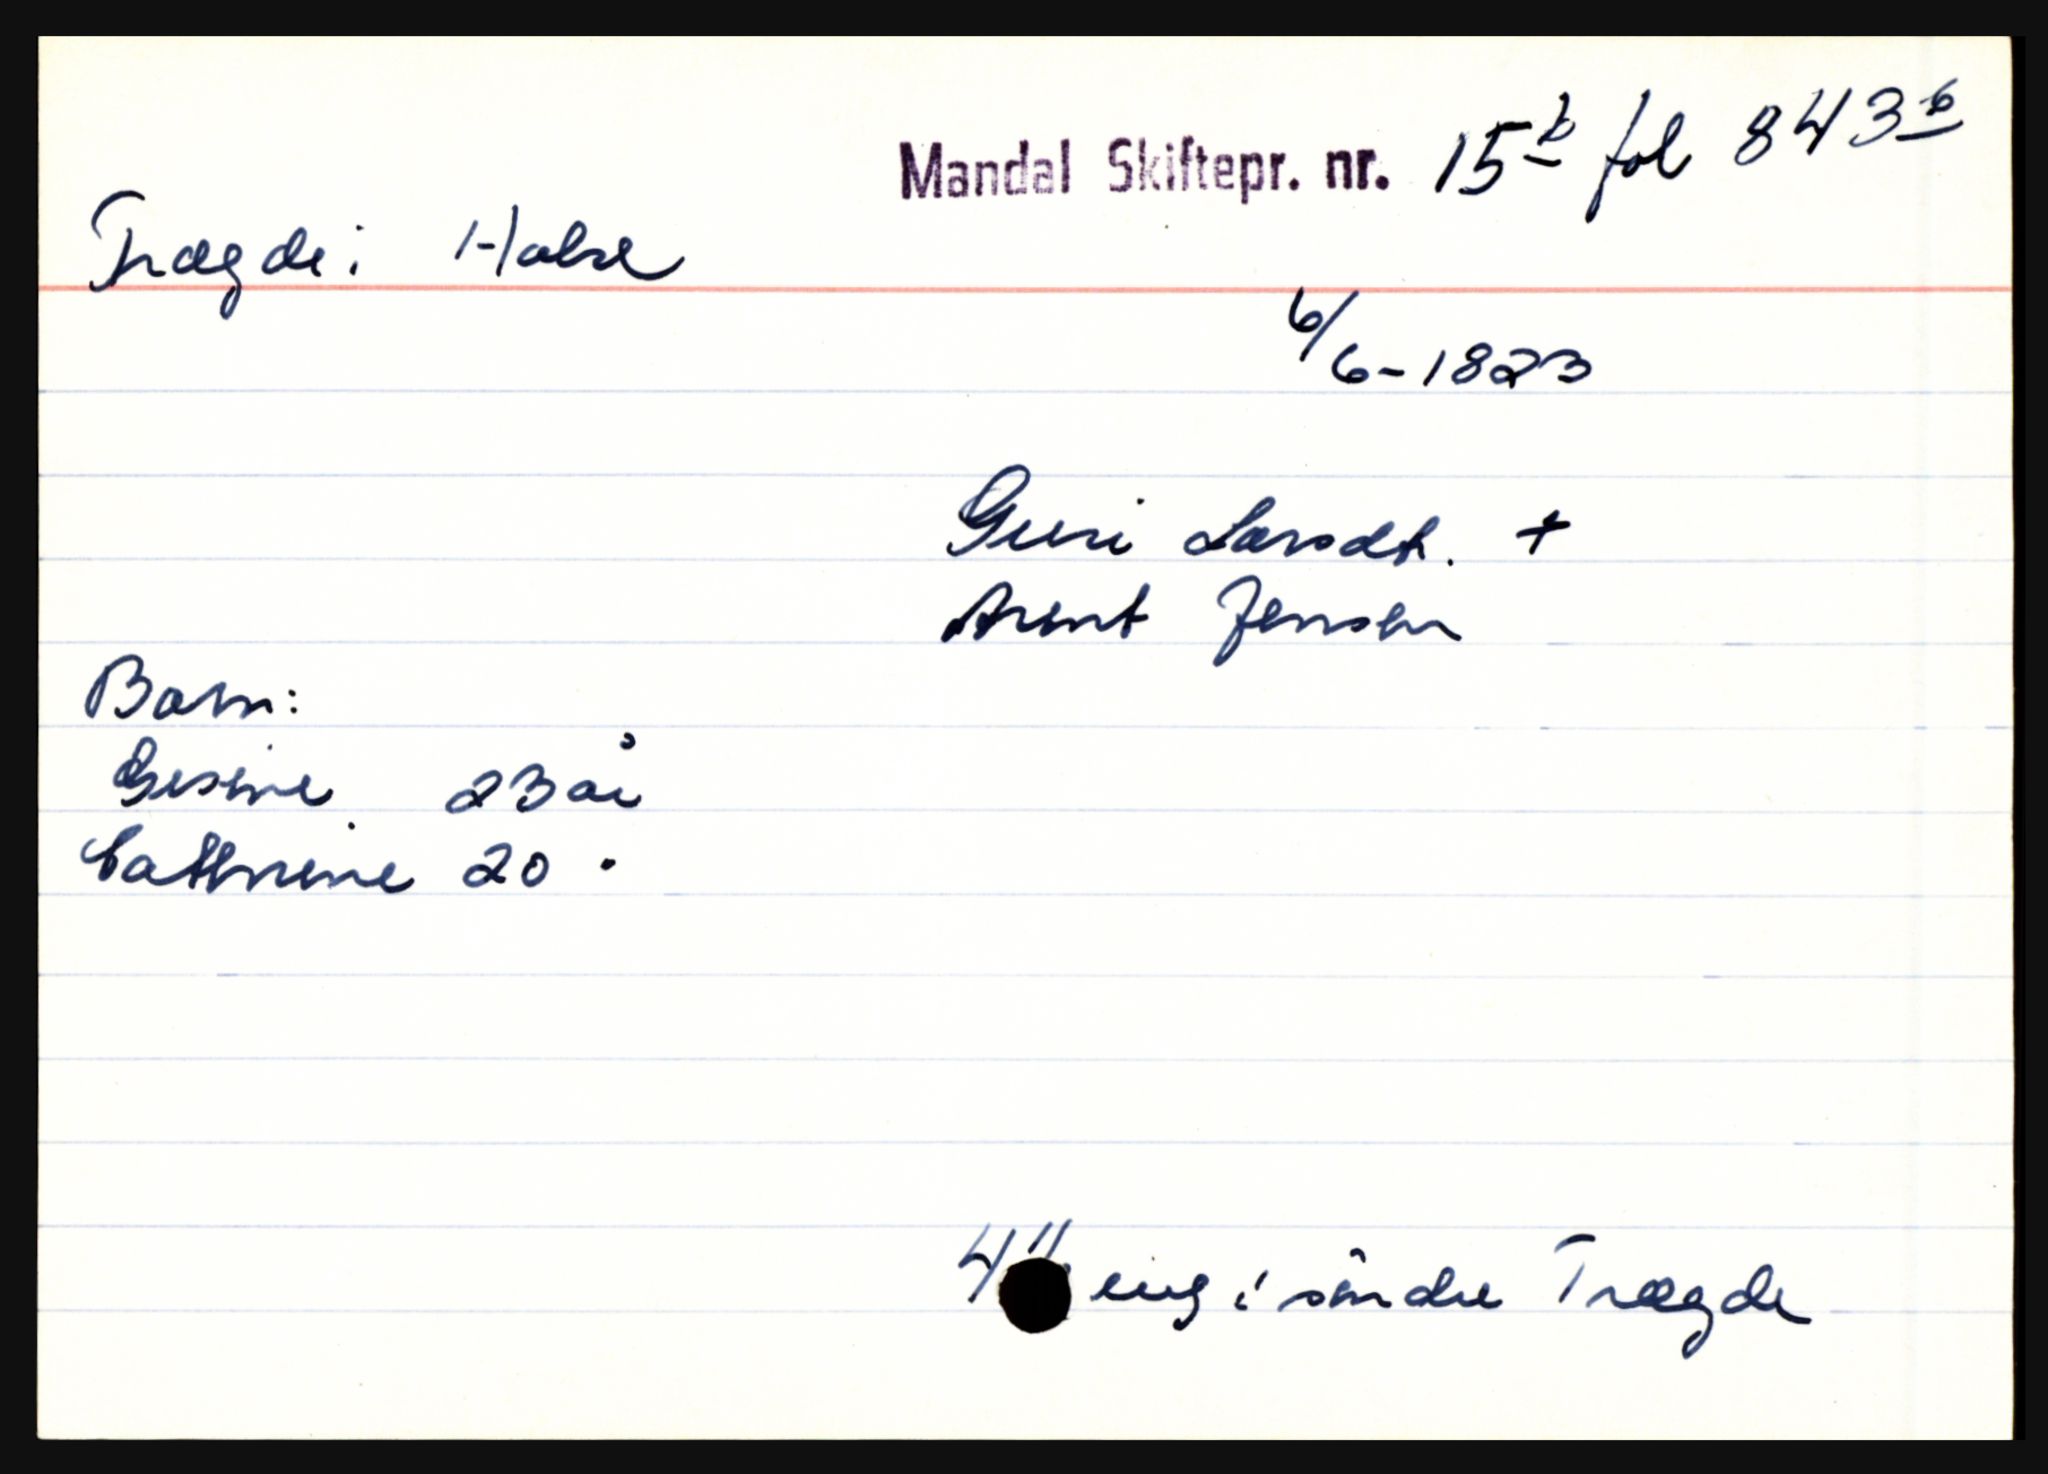 Mandal Skiftepr. nr. 15b fol 843b
Trægde i Halse
6/6-1823
Guri Larsdt. +
Arent Jensen
Barn:
Gesine 23 år
Cathrine 20 "
4 eng i söndre Trægde